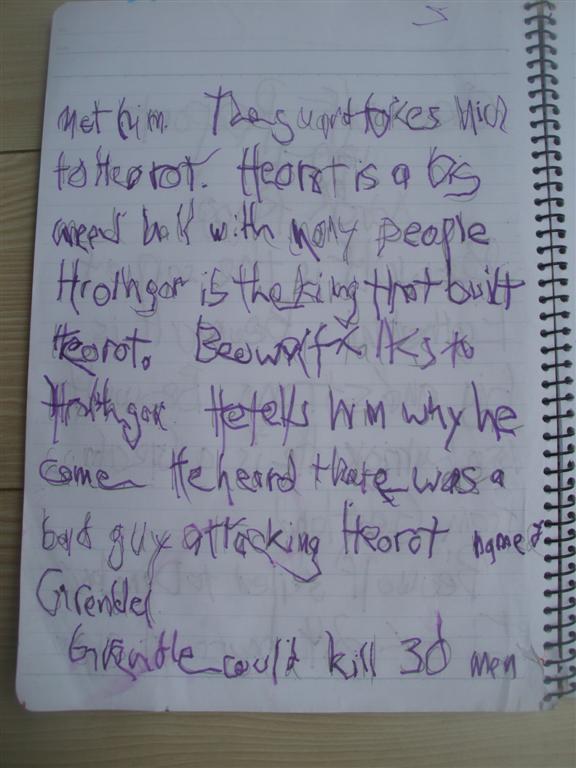 met him. The guard takes him
to Heorot. Heorot is a big
mead hall with many people
Hrothgar is the king that built
Heorot. Beowulf talks to
Hrothgar. He tells him why he
came He heard there was a
bad guy attacking Heorot named
Grendel
Grendle could kill 30 men